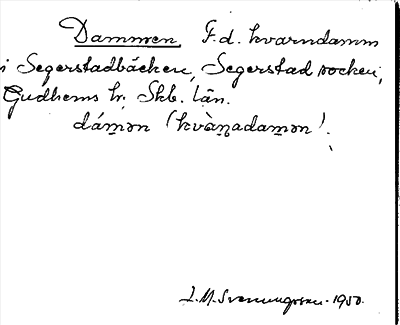 Dammen. F.d. kvarndamm
i Segerstadbäcken, Segerstad socken,
Gudhems hr. Skb. län.
dámən (kvàṇadamən).
S.M. Svenungsson. 1950.